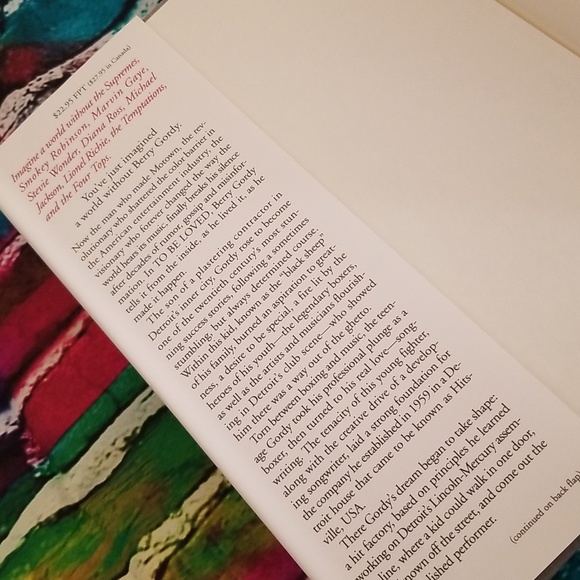 $22.95 FPT ($27.95 in Canada)
Imagine a world without the Supremes,
Smokey Robinson, Marvin Gaye,
Stevie Wonder, Diana Ross, Michael
Jackson, Lionel Richie, the Temptations,
and the Four Tops.
You've just imagined
a world without Berry Gordy.
Now the man who made Motown, the rev-
olutionary who shattered the color barrier in
the American entertainment industry, the
visionary who forever changed the way the
world hears its music, finally breaks his silence
after decades of rumor, gossip and misinfor-
mation. In TO BE LOVED, Berry Gordy
tells it from the inside, as he lived it, as he
made it happen.
The son of a plastering contractor in
Detroit's inner city, Gordy rose to become
one of the twentieth century's most stun-
ning success stories, following a sometimes
stumbling, but always determined course.
Within this kid, known as the "black sheep
of his family, burned an aspiration to great-
ness, a desire to be special, a fire lit by the
heroes of his youth—the legendary boxers,
as well as the artists and musicians flourish-
ing in Detroit's club scene—who showed
him there was a way out of the ghetto.
Torn between boxing and music, the teen-
age Gordy took his professional plunge as a
boxer, then turned to his real love—song-
writing. The tenacity of this young fighter,
along with the creative drive of a develop-
ing songwriter, laid a strong foundation for
the company he established in 1959 in a De-
troit house that came to be known as Hits-
ville, USA.
There Gordy's dream began to take shape:
a hit factory, based on principles he learned
working on Detroit's Lincoln-Mercury assem-
line, where a kid could walk in one door,
nown off the street, and come out the
ished performer.
(continued on back flap)